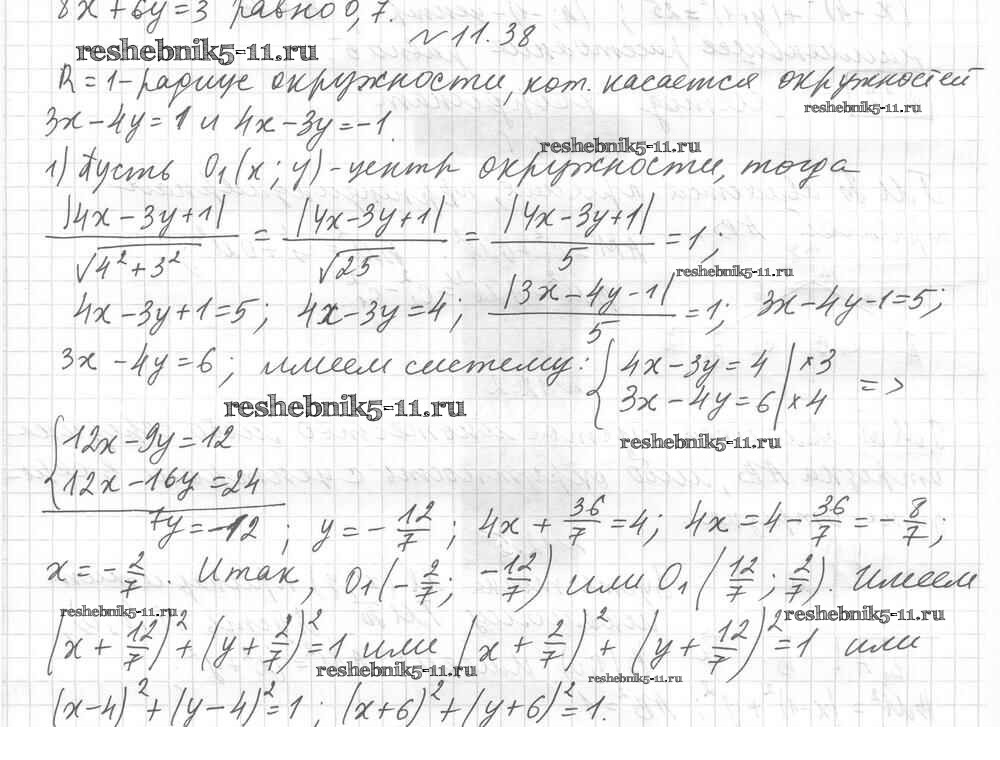 8x + 6y = 3 равно 0,7.
№ 11.38
reshebnik5-11.ru
R = 1 - радиус окружности, кот. касается окружностей
reshebnik5-11.ru
3x - 4y = 1 и 4x - 3y = -1.
reshebnik5-11.ru
1) Пусть O₁(x; y) - центр окружности, тогда
|4x - 3y + 1| / √(4² + 3²) = |4x - 3y + 1| / √25 = |4x - 3y + 1| / 5 = 1;
reshebnik5-11.ru
4x - 3y + 1 = 5; 4x - 3y = 4; |3x - 4y - 1| / 5 = 1; 3x - 4y - 1 = 5;
3x - 4y = 6; имеем систему: { 4x - 3y = 4 | × 3
3x - 4y = 6 | × 4 =>
reshebnik5-11.ru
reshebnik5-11.ru
{ 12x - 9y = 12
12x - 16y = 24
7y = -12; y = -12/7; 4x + 36/7 = 4; 4x = 4 - 36/7 = -8/7;
x = -2/7. Итак, O₁(-2/7; -12/7) или O₁(12/7; 2/7). Имеем
reshebnik5-11.ru
reshebnik5-11.ru
(x + 12/7)² + (y + 2/7)² = 1 или (x + 2/7)² + (y + 12/7)² = 1 или
reshebnik5-11.ru
reshebnik5-11.ru
(x - 4)² + (y - 4)² = 1; (x + 6)² + (y + 6)² = 1.